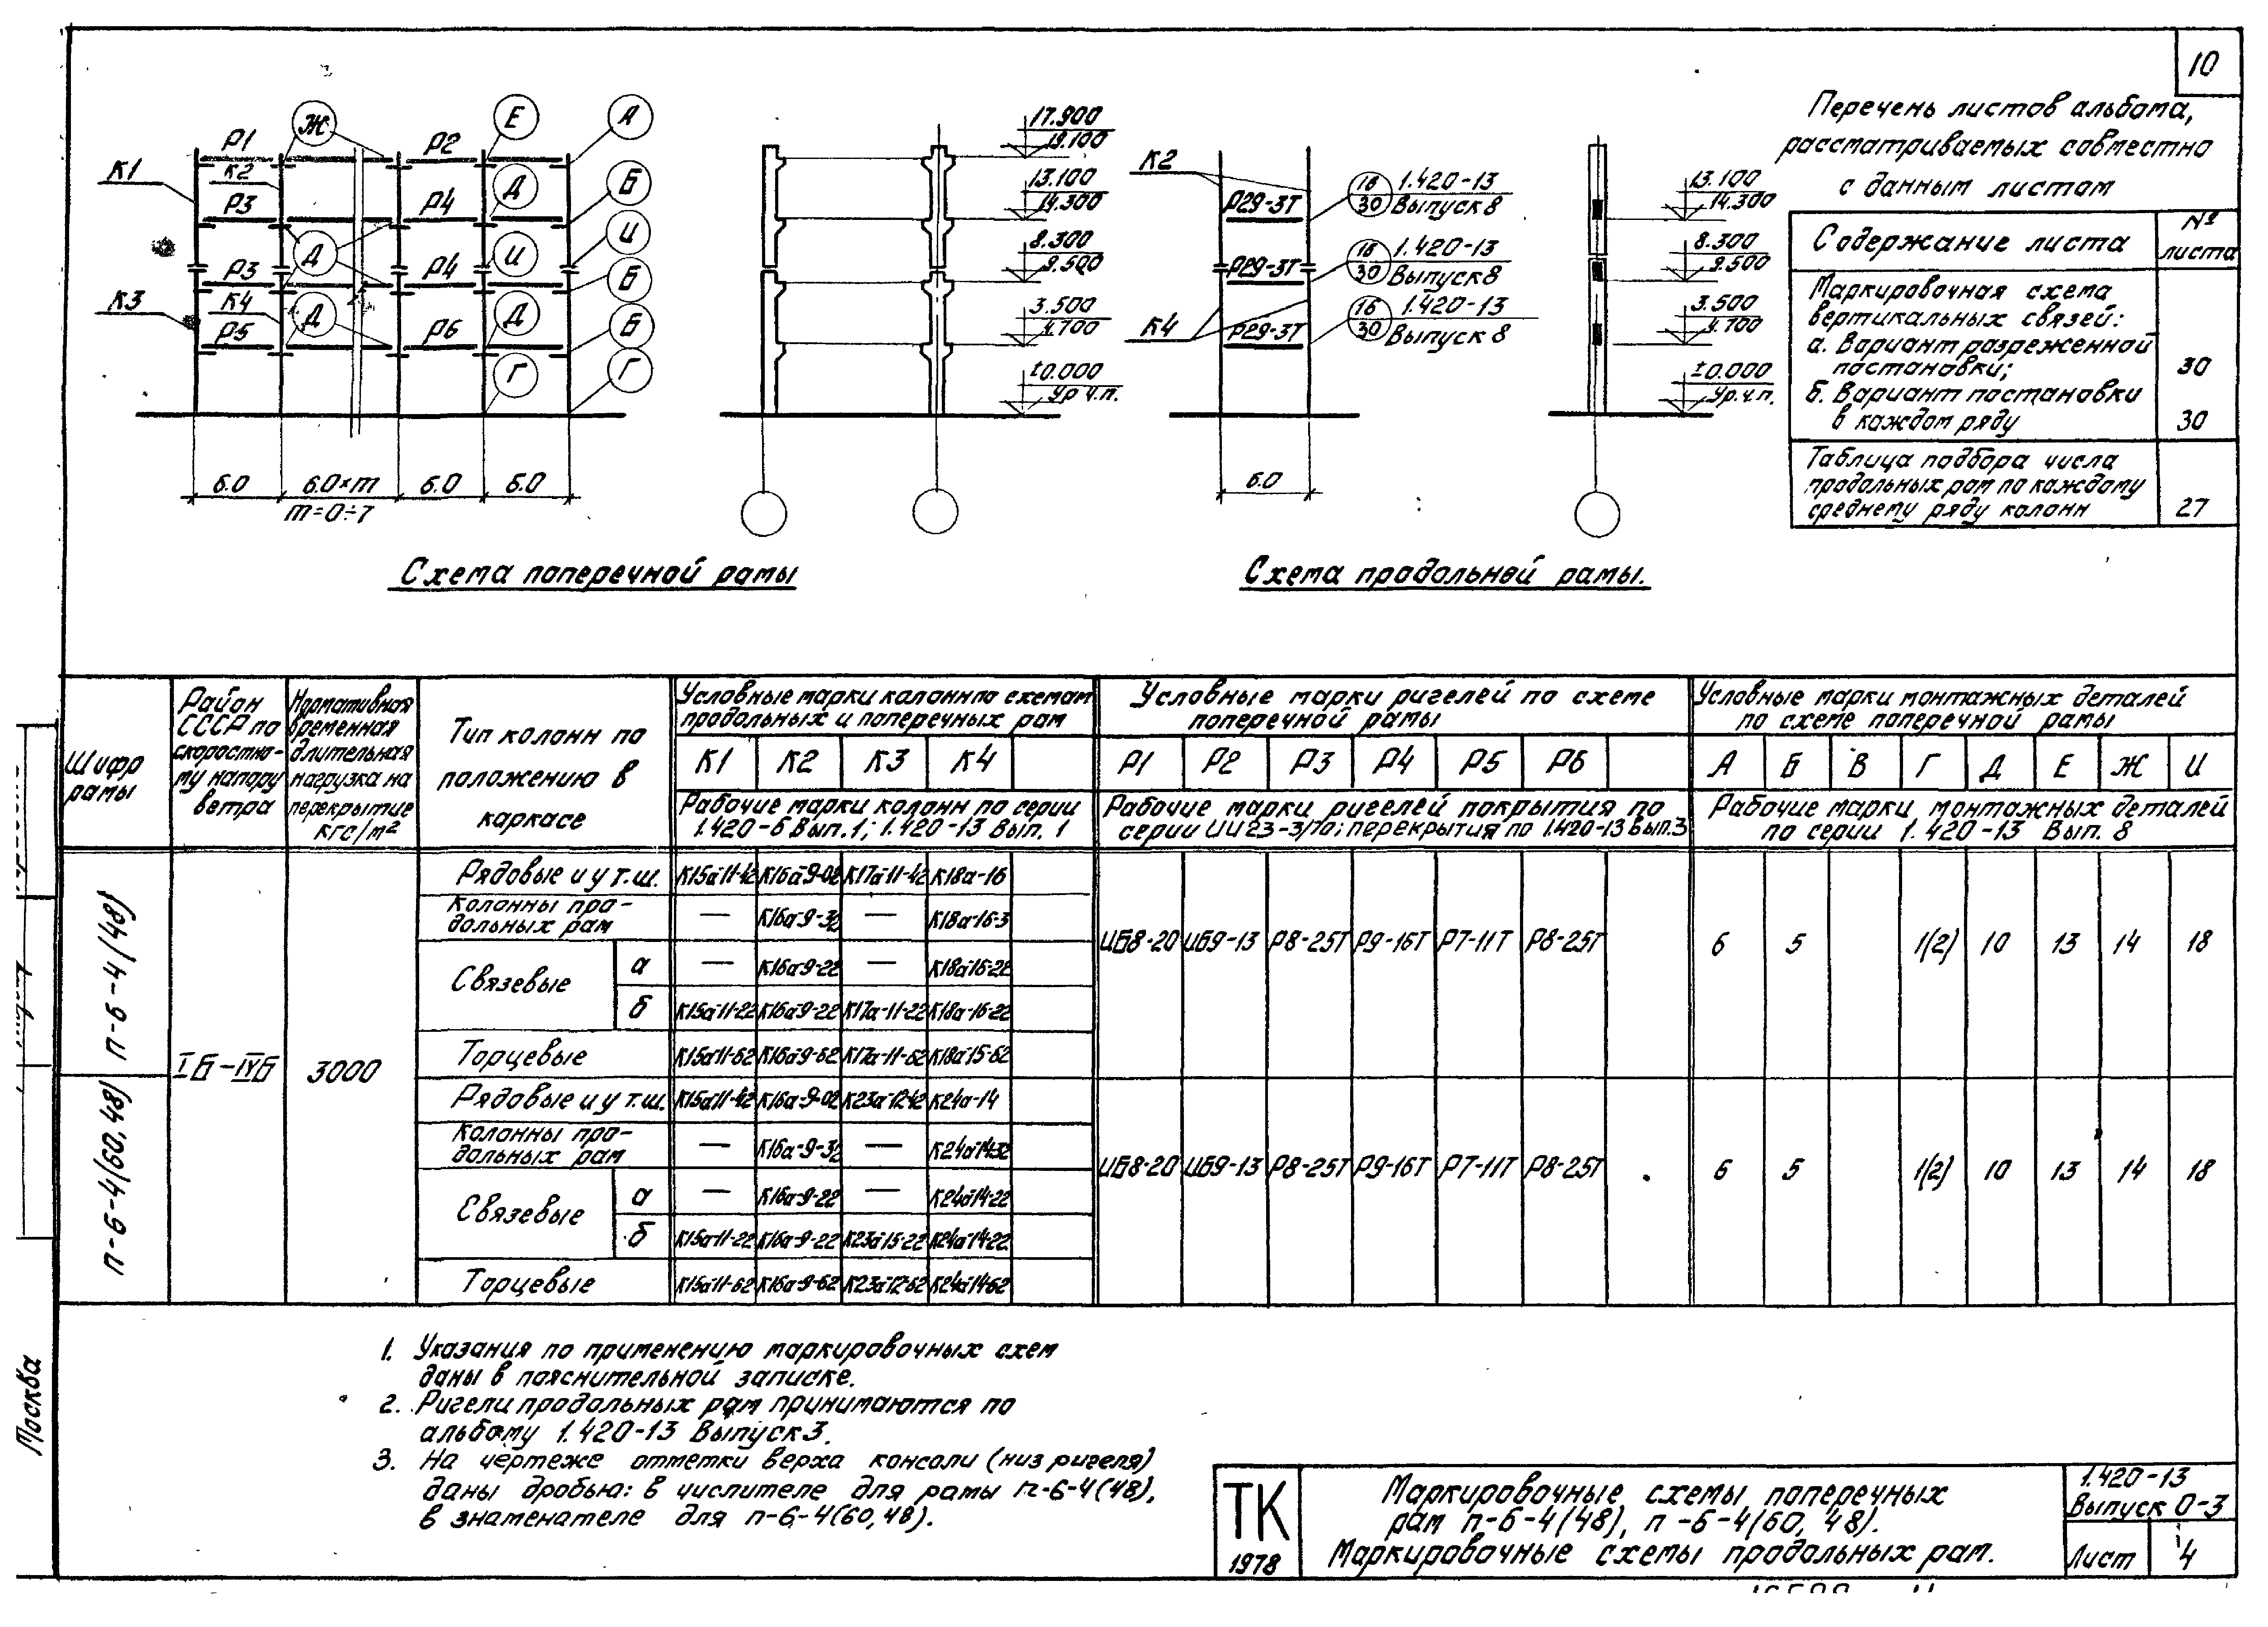 10
Р1
Ж
Р2
Е
А
К1
К2
Р3
Р4
Д
Б
Д
И
И
Р3
Р4
Б
К3
К4
Р5
Д
Р6
Д
Б
Г
Г
6.0
6.0×m
6.0
6.0
m=0÷7
17.900
19.100
13.100
14.300
8.300
9.500
3.500
4.700
±0.000
Ур.ч.п.
Схема поперечной рамы
К2
Р29-3Т
16
30
1.420-13
Выпуск 8
Р29-3Т
16
30
1.420-13
Выпуск 8
К4
Р29-3Т
16
30
1.420-13
Выпуск 8
6.0
13.100
14.300
8.300
9.500
3.500
4.700
±0.000
Ур.ч.п.
Схема продольной рамы.
Перечень листов альбома,
рассматриваемых совместно
с данным листом
Содержание листа
№ листа
Маркировочная схема
вертикальных связей:
а. Вариант разреженной
постановки; 30
б. Вариант постановки
в каждом ряду 30
Таблица подбора числа
продольных рам по каждому
среднему ряду колонн 27
Шифр рамы
Район СССР по скоростно-му напору ветра
Нормативная временная длительная нагрузка на перекрытие кгс/м²
Тип колонн по положению в каркасе
Условные марки колонн по схемам
продольных и поперечных рам
К1 К2 К3 К4
Рабочие марки колонн по серии
1.420-6 Вып.1; 1.420-13 Вып. 1
Условные марки ригелей по схеме
поперечной рамы
Р1 Р2 Р3 Р4 Р5 Р6
Рабочие марки ригелей покрытия по
серии ИИ23-3/70; перекрытия по 1.420-13 Вып.3
Условные марки монтажных деталей
по схеме поперечной рамы
А Б В Г Д Е Ж И
Рабочие марки монтажных деталей
по серии 1.420-13 Вып. 8
п-6-4(48)
п-6-4(60,48)
IБ-IVБ
3000
Рядовые и у т.ш. К15а-11-42 К16а-9-02 К17а-11-42 К18а-16
Колонны про-
дольных рам — К16а-9-32 — К18а-16-3
Связевые
а — К16а-9-22 — К18а-16-22
б К15а-11-22 К16а-9-22 К17а-11-22 К18а-16-22
Торцевые К15а-11-62 К16а-9-62 К17а-11-62 К18а-15-62
ИБ8-20 ИБ9-13 Р8-25Т Р9-16Т Р7-11Т Р8-25Т
6 5 1(2) 10 13 14 18
Рядовые и у т.ш. К15а-11-42 К16а-9-02 К23а-12-42 К24а-14
Колонны про-
дольных рам — К16а-9-32 — К24а-14-32
Связевые
а — К16а-9-22 — К24а-14-22
б К15а-11-22 К16а-9-22 К23а-15-22 К24а-14-22
Торцевые К15а-11-62 К16а-9-62 К23а-12-62 К24а-14-62
ИБ8-20 ИБ9-13 Р8-25Т Р9-16Т Р7-11Т Р8-25Т
6 5 1(2) 10 13 14 18
1. Указания по применению маркировочных схем
даны в пояснительной записке.
2. Ригели продольных рам принимаются по
альбому 1.420-13 Выпуск 3.
3. На чертеже отметки верха консоли (низ ригеля)
даны дробью: в числителе для рамы п-6-4(48),
в знаменателе для п-6-4(60,48).
Москва
ТК
1978
Маркировочные схемы поперечных
рам п-6-4(48), п-6-4(60, 48).
Маркировочные схемы продольных рам.
1.420-13
Выпуск 0-3
Лист 4